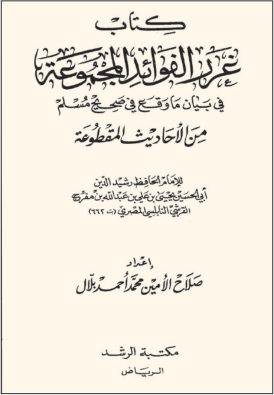 كتاب
غرر الفوائد المجموعة
في بيان ما وقع في صحيح مسلم
من الأحاديث المقطوعة
للإمام الحافظ رشيد الدين
أبي الحسين يحيى بن علي بن عبد الله بن مفرج
القرشي النابلسي المصري (ت ٦٦٢)
إعداد
صلاح الأمين محمد أحمد بلال
مكتبة الرشد
الرياض